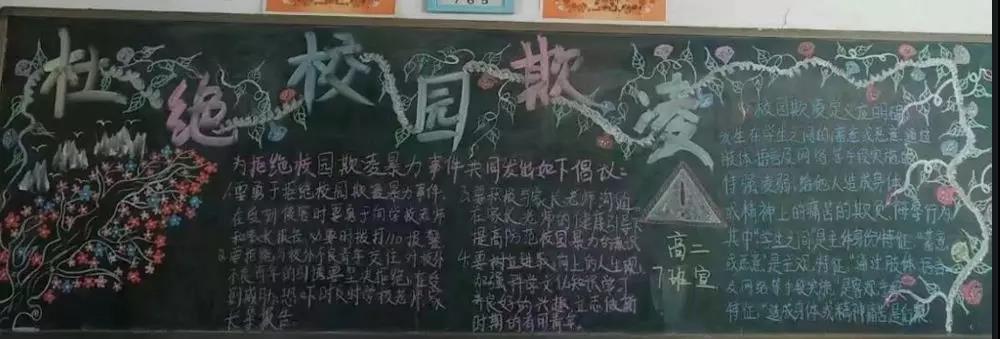 765
杜绝校园欺凌
为拒绝校园欺凌暴力事件共同发出如下倡议:
1.要勇于拒绝校园欺凌暴力事件,
在受到侵害时要勇于向学校老师
和家长报告,必要时拨打110报警
2.要拒绝与校外不良青年交往,对校外
不良青年的引诱要坚决拒绝,在受
到威胁、恐吓时及时学校老师家
长来报告
3.要积极与家长老师沟通,
在家长老师的健康引导下
提高防范校园暴力的意识
4.要树立进取向上的人生观,
加强科学文化知识学习
养良好的兴趣,立志做新
时期的有用青年.
高二
7班宣
校园欺凌定义应明确
发生在学生之间的蓄意或恶意通过
肢体语言及网络等手段实施
恃强凌弱,给他人造成身体
或精神上的痛苦的欺负侮辱行为
其中"学生之间"是主体身份特征,"蓄意
或恶意"是主观特征,"通过肢体语言
及网络等手段实施"是客观
特征,"造成身体或精神痛苦是